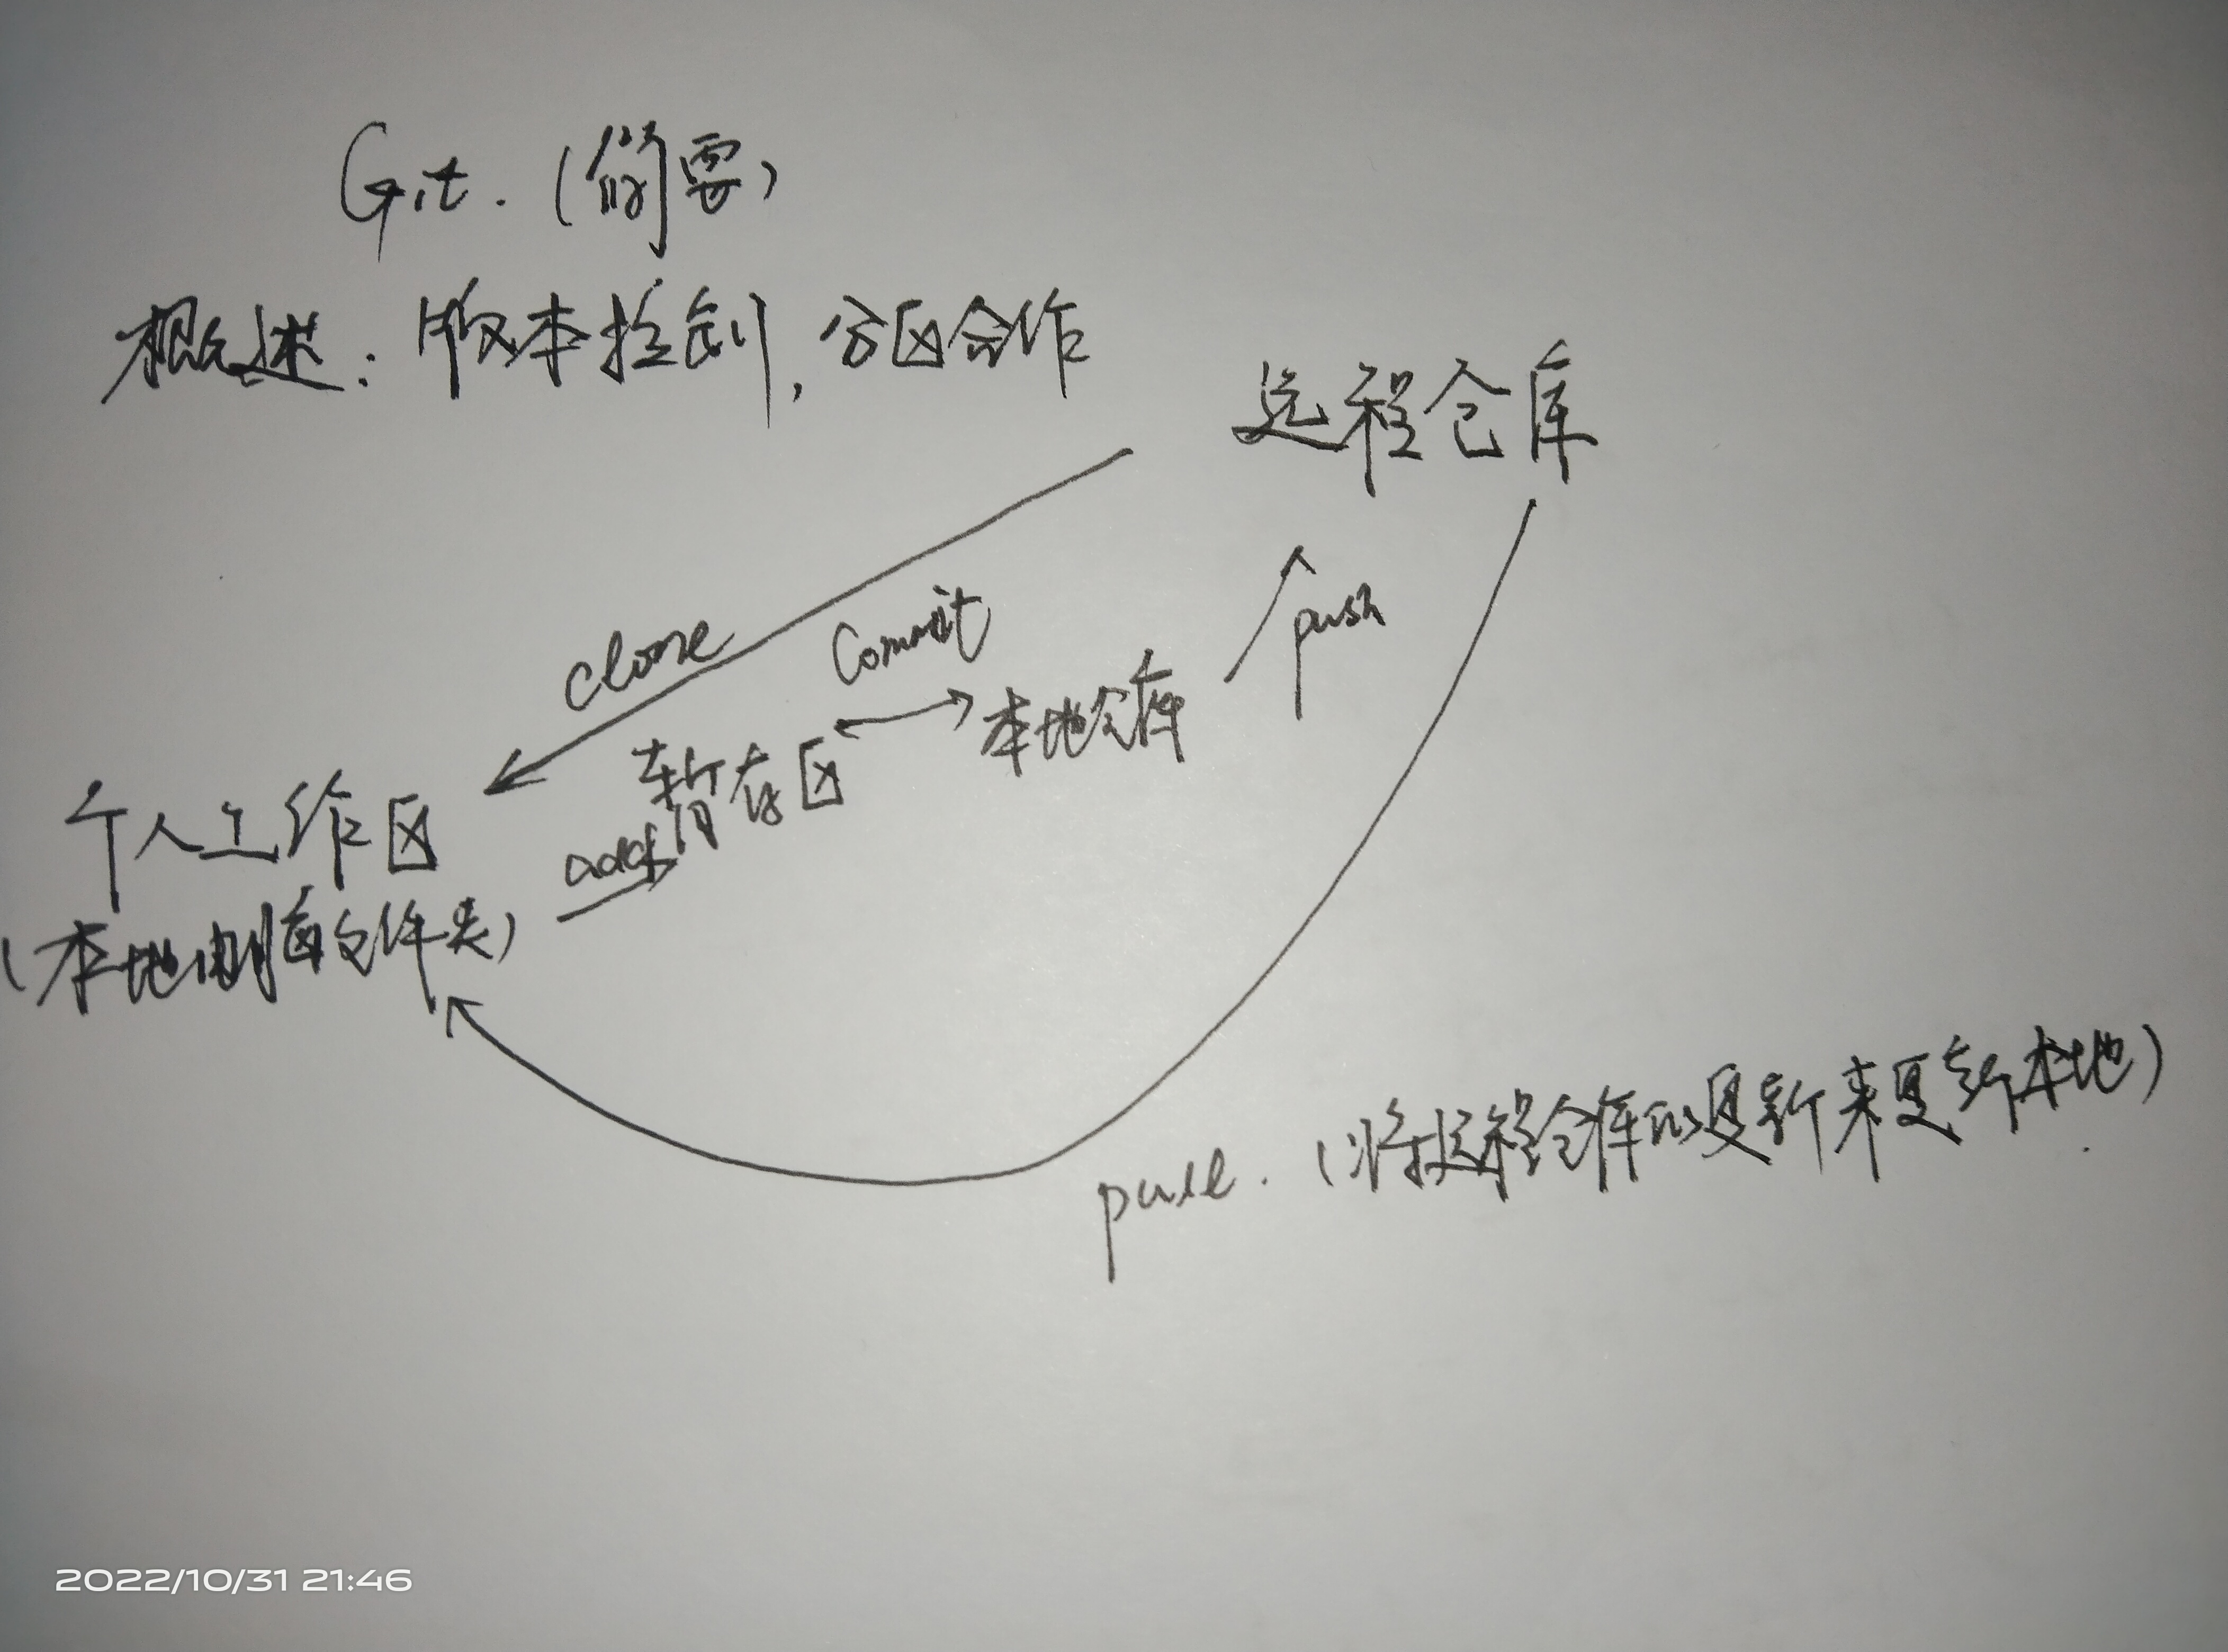 Git. (简要)
概述: 版本控制, 分区合作
远程仓库
clone
commit
push
本地仓库
暂存区
add
个人工作区
(本地 文件夹)
pull. (将远程仓库的更新来更新本地)
2022/10/31 21:46